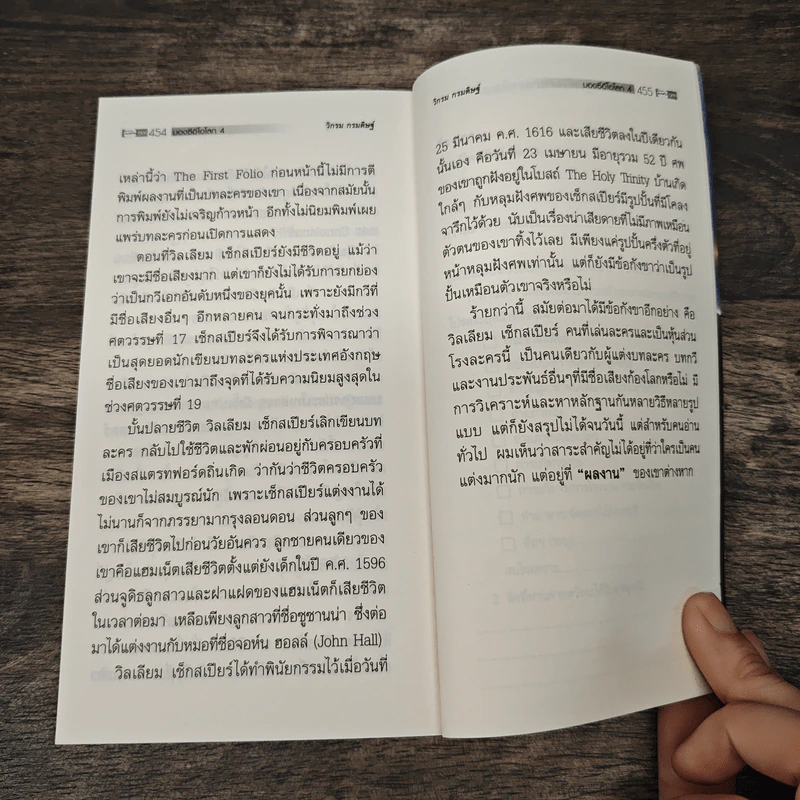 454 มองซีอีโอโลก 4
วิกรม กรมดิษฐ์
เหล่านี้ว่า The First Folio ก่อนหน้านี้ไม่มีการตี
พิมพ์ผลงานที่เป็นบทละครของเขา เนื่องจากสมัยนั้น
การพิมพ์ยังไม่เจริญก้าวหน้า อีกทั้งไม่นิยมพิมพ์เผย
แพร่บทละครก่อนเปิดการแสดง
ตอนที่วิลเลียม เช็กสเปียร์ยังมีชีวิตอยู่ แม้ว่า
เขาจะมีชื่อเสียงมาก แต่เขาก็ยังไม่ได้รับการยกย่อง
ว่าเป็นกวีเอกอันดับหนึ่งของยุคนั้น เพราะยังมีกวีที่
มีชื่อเสียงอื่นๆ อีกหลายคน จนกระทั่งมาถึงช่วง
ศตวรรษที่ 17 เช็กสเปียร์จึงได้รับการพิจารณาว่า
เป็นสุดยอดนักเขียนบทละครแห่งประเทศอังกฤษ
ชื่อเสียงของเขามาถึงจุดที่ได้รับความนิยมสูงสุดใน
ช่วงศตวรรษที่ 19
บั้นปลายชีวิต วิลเลียม เช็กสเปียร์เลิกเขียนบท
ละคร กลับไปใช้ชีวิตและพักผ่อนอยู่กับครอบครัวที่
เมืองสแตรทฟอร์ดถิ่นเกิด ว่ากันว่าชีวิตครอบครัว
ของเขาไม่สมบูรณ์นัก เพราะเช็กสเปียร์แต่งงานได้
ไม่นานก็จากภรรยามากรุงลอนดอน ส่วนลูกๆ ของ
เขาก็เสียชีวิตไปก่อนวัยอันควร ลูกชายคนเดียวของ
เขาคือแฮมเน็ตเสียชีวิตตั้งแต่ยังเด็กในปี ค.ศ. 1596
ส่วนจูดิธลูกสาวและฝาแฝดของแฮมเน็ตก็เสียชีวิต
ในเวลาต่อมา เหลือเพียงลูกสาวที่ชื่อซูซานน่า ซึ่งต่อ
มาได้แต่งงานกับหมอที่ชื่อจอห์น ฮอลล์ (John Hall)
วิลเลียม เช็กสเปียร์ได้ทำพินัยกรรมไว้เมื่อวันที่
วิกรม กรมดิษฐ์
มองซีอีโอโลก 4 455
25 มีนาคม ค.ศ. 1616 และเสียชีวิตลงในปีเดียวกัน
นั้นเอง คือวันที่ 23 เมษายน มีอายุรวม 52 ปี ศพ
ของเขาถูกฝังอยู่ในโบสถ์ The Holy Trinity บ้านเกิด
ใกล้ๆ กับหลุมฝังศพของเช็กสเปียร์มีรูปปั้นที่มีโคลง
จารึกไว้ด้วย นับเป็นเรื่องน่าเสียดายที่ไม่มีภาพเหมือน
ตัวตนของเขาทิ้งไว้เลย มีเพียงแค่รูปปั้นครึ่งตัวที่อยู่
หน้าหลุมฝังศพเท่านั้น แต่ก็ยังมีข้อกังขาว่าเป็นรูป
ปั้นเหมือนตัวเขาจริงหรือไม่
ร้ายกว่านี้ สมัยต่อมาได้มีข้อกังขาอีกอย่าง คือ
วิลเลียม เช็กสเปียร์ คนที่เล่นละครและเป็นหุ้นส่วน
โรงละครนี้ เป็นคนเดียวกับผู้แต่งบทละคร บทกวี
และงานประพันธ์อื่นๆที่มีชื่อเสียงก้องโลกหรือไม่ มี
การวิเคราะห์และหาหลักฐานกันหลายวิธีหลายรูป
แบบ แต่ก็ยังสรุปไม่ได้จนวันนี้ แต่สำหรับคนอ่าน
ทั่วไป ผมเห็นว่าสาระสำคัญไม่ได้อยู่ที่ว่าใครเป็นคน
แต่งมากนัก แต่อยู่ที่ “ผลงาน” ของเขาต่างหาก